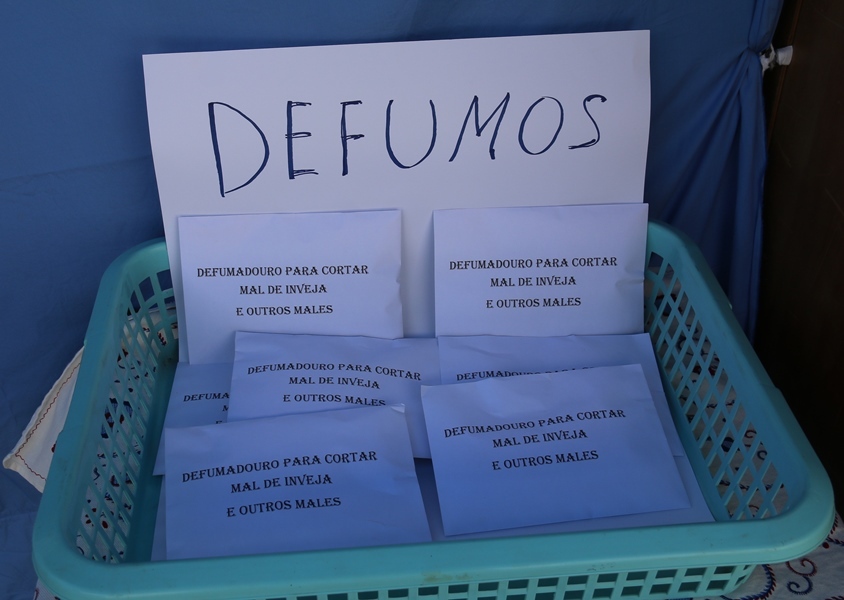 DEFUMOS
DEFUMADOURO PARA CORTAR
MAL DE INVEJA
E OUTROS MALES
DEFUMADOURO PARA CORTAR
MAL DE INVEJA
E OUTROS MALES
DEFUMADOURO PARA CORTAR
MAL DE INVEJA
E OUTROS MALES
DEFUMADOURO PARA CORTAR
MAL DE INVEJA
E OUTROS MALES
DEFUMADOURO PARA CORTAR
MAL DE INVEJA
E OUTROS MALES